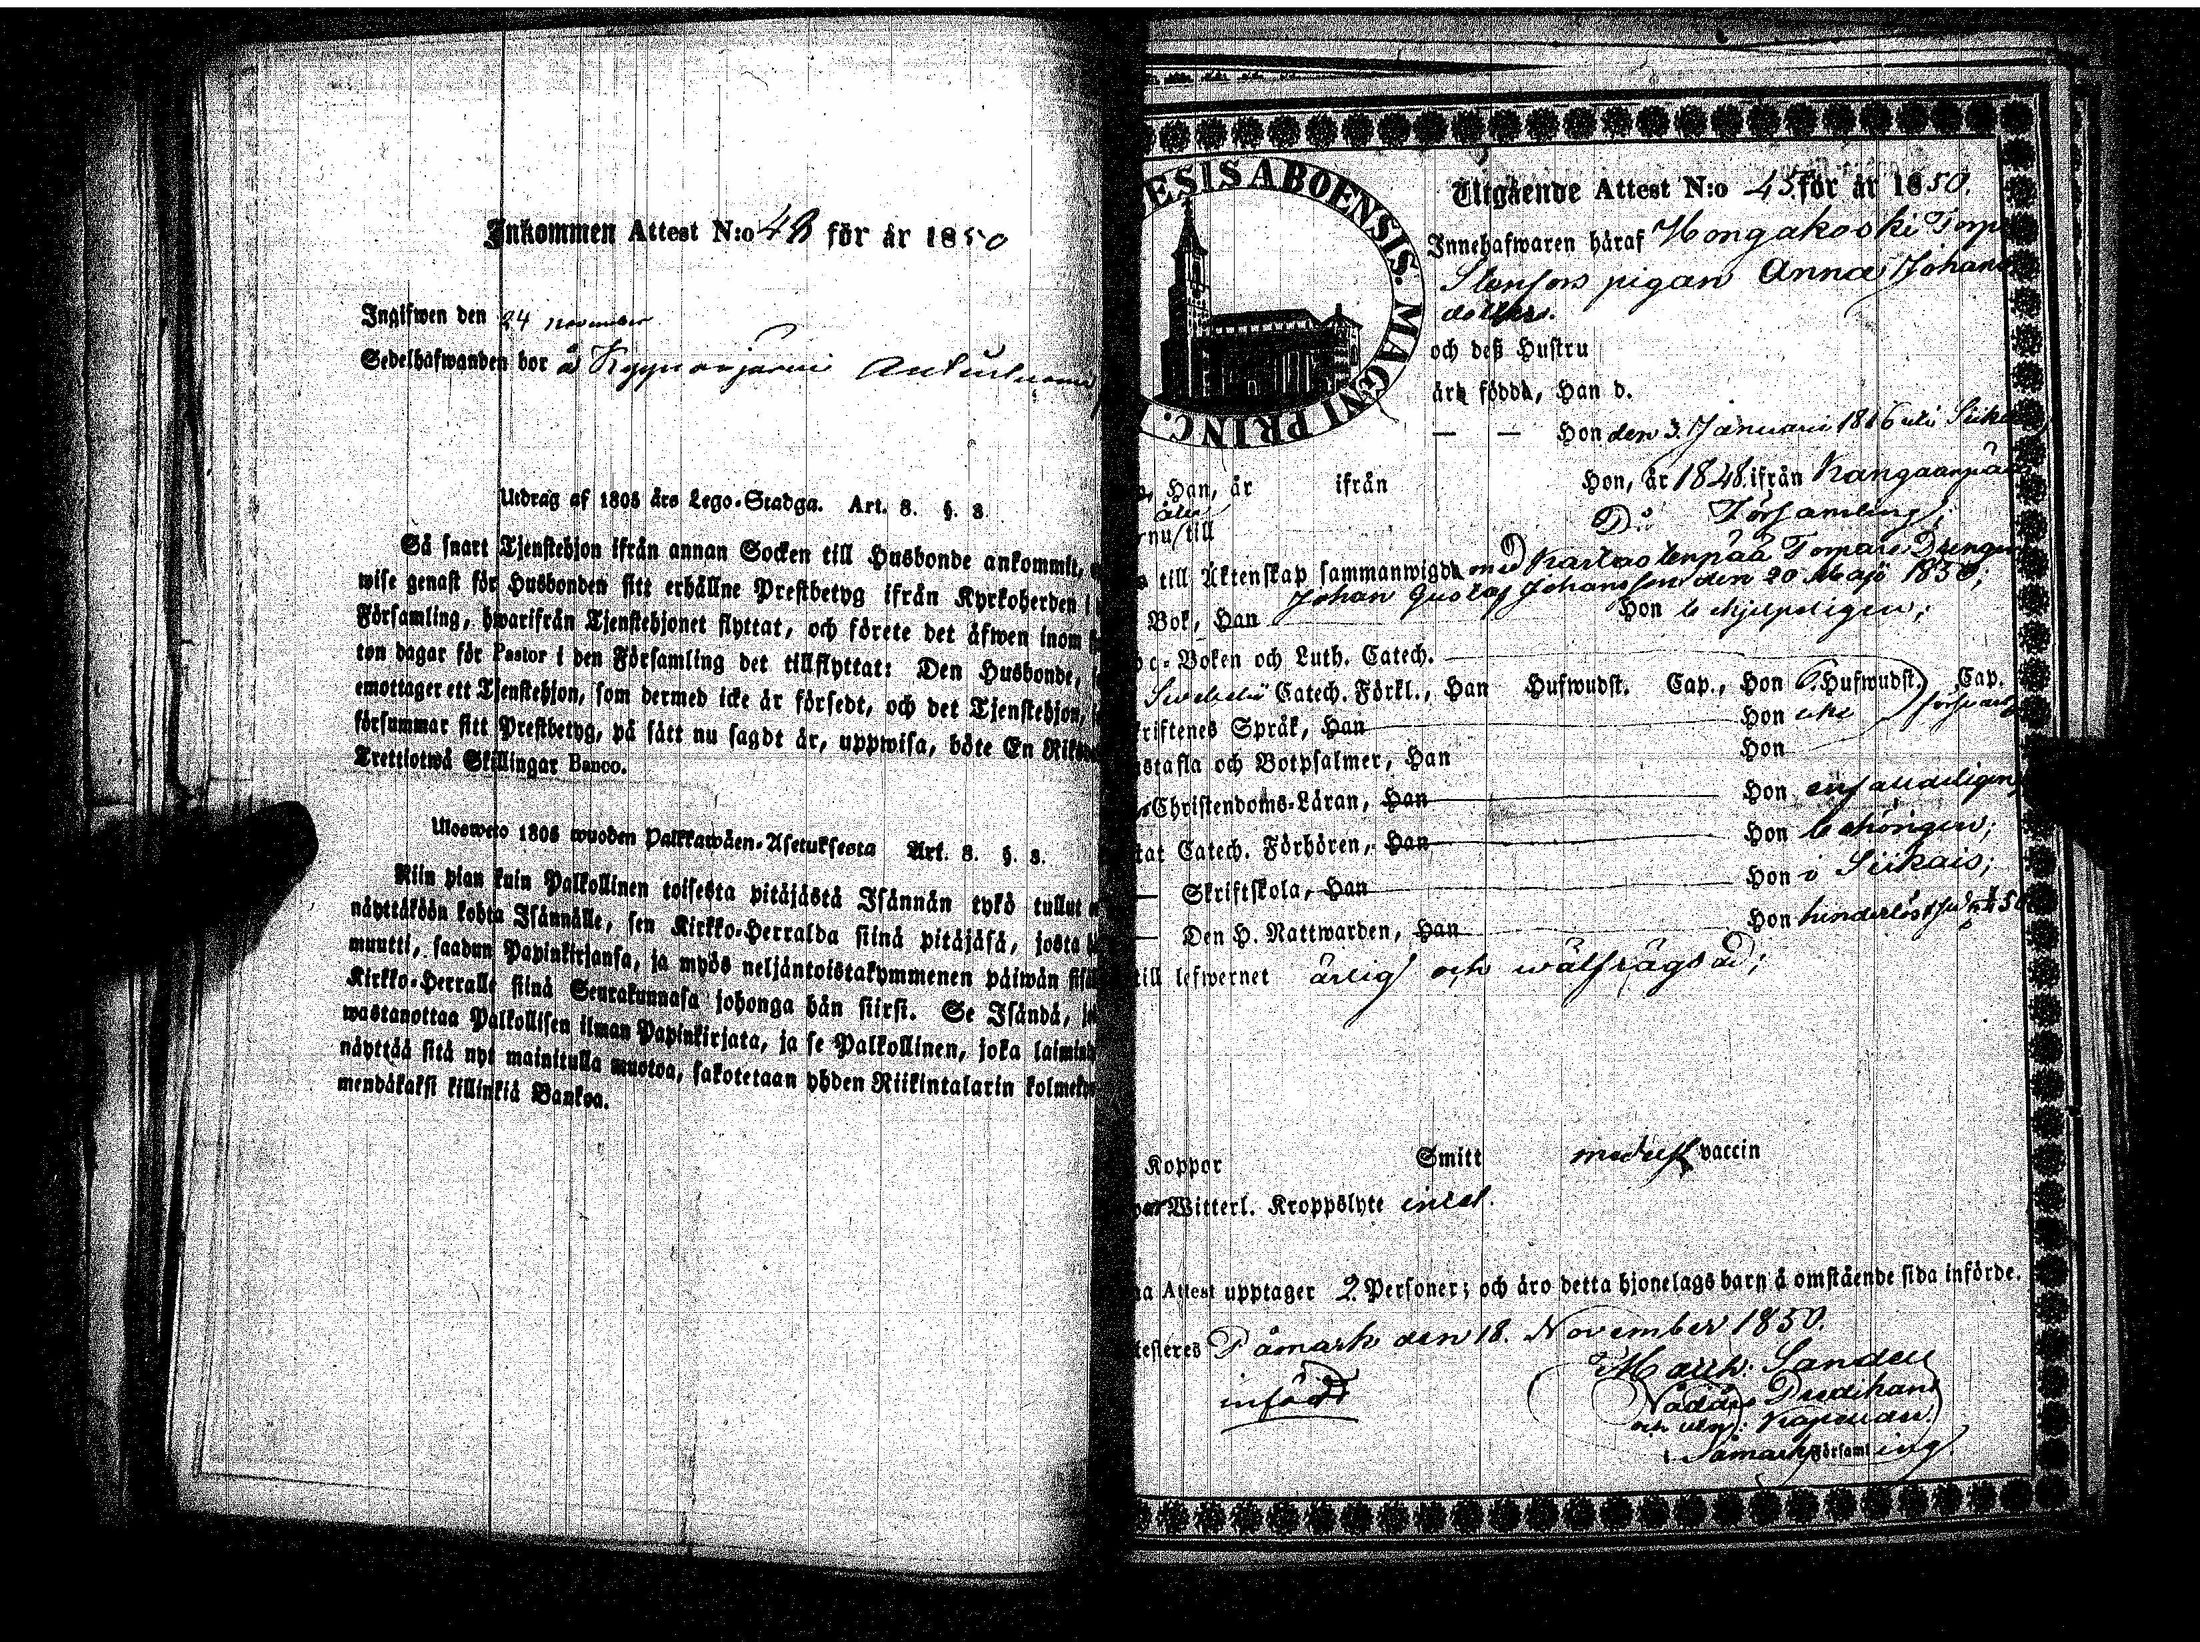 Inkommen Attest N:o 48 för år 1850
Ingifwen den 24 november
Sedelhafwanden bor å Kyynärjärvi
Utdrag af 1805 års Lego-Stadga. Art. 8. §. 3.
Så snart Tjenstehjon ifrån annan Socken till Husbonde ankommit,
wise genast för Husbonden sitt erhållne Prestbetyg ifrån Kyrkoherden i
Församling, hwarifrån Tjenstehjonet flyttat, och förete det äfwen inom
ton dagar för Pastor i den Församling det tillflyttat: Den Husbonde,
emottager ett Tjenstehjon, som dermed icke är försedt, och det Tjenstehjon,
försummar sitt Prestbetyg, på sätt nu sagdt är, uppwisa, böte En
Trettiotwå Skillingar Banco.
Uloswето 1805 wuoden Palkkawäen-Asetuksesta Art. 8. §. 3.
Niin pian kuin Palkollinen toisesta pitäjästä Isännän tykö tullut
näyttäköön kohta Isännälle, sen Kirkko-Herralda siinä pitäjäsä, josta
muutti, saadun Papinkirjansa, ja myös neljäntoistakymmenen päiwän
Kirkko-Herralle siinä Seurakunnasa johonga hän siirsi. Se Isändä,
wastanottaa Palkollisen ilman Papinkirjata, ja se Palkollinen, joka
näyttää sitä nyt mainitulla muotoa, sakotetaan yhden Riikintalarin
mendäkaksi killinkiä Bankoa.
ESIS ABOENSIS. MAGNI PRINC.
Utgående Attest N:o 45. för år 1850.
Innehafwaren häraf Hongakoski Torp
Stenfors pigan Anna Johans
dotter.
och deß Hustru
äro födda, Han d.
— — Hon den 3. Januari 1816 uti
Han, är ifrån Hon, år 1848. ifrån Kangaanpää
nu till D:o Församling;
till Äktenskap sammanwigda med Torpare Drengen
Johan Gustaf Johansson den 20 Majo 1850;
Bok, Han Hon behjelpeligen;
Boken och Luth. Catech.
Swebelii Catech. Förkl., Han Hufwudst. Cap., Hon 6. Hufwudst. Cap.
riftenes Språk, Han Hon
stafla och Botpsalmer, Han Hon
Christendoms-Läran, Han Hon enfaldeligen,
tat Catech. Förhören, Han Hon behörigen;
— Skriftskola, Han Hon i Siikais;
— Den H. Nattwarden, Han Hon hinderlöst
till lefwernet ärlig och wälfrägdad;
Koppor Smitt medelst vaccin
Witterl. Kroppslyte intet.
Attest upptager 2. Personer; och äro detta hjonelags barn å omstående sida införde.
testeres Påmark den 18. November 1850.
införd
Sandell
Predikant
och Kapellan.
i Påmark Församling.